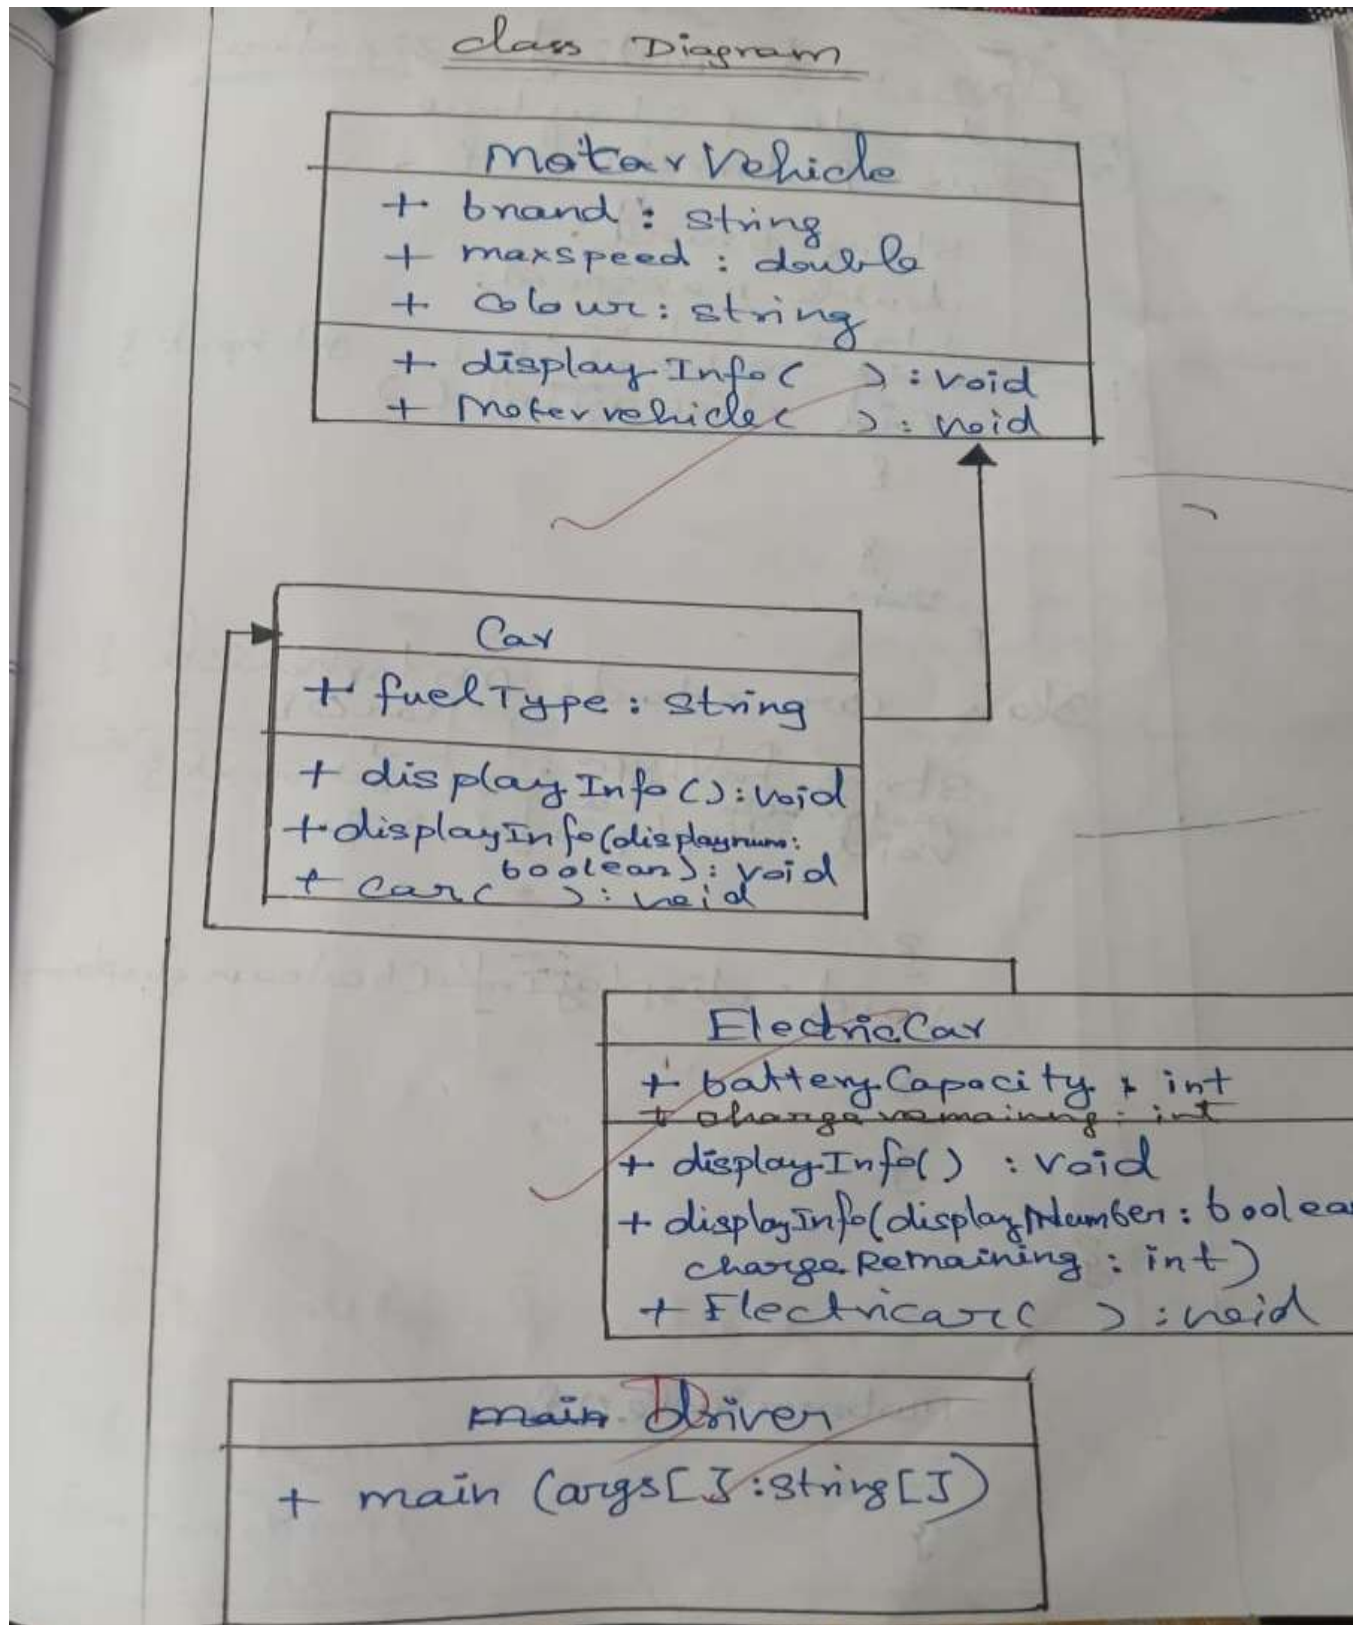 class Diagram
MotarVehicle
+ brand : string
+ maxspeed : double
+ Colour : string
+ displayInfo( ) : void
+ Motervehicle( ) : void
Car
+ fuelType : String
+ displayInfo() : void
+ displayInfo(displaynum:
boolean) : void
+ Car( ) : void
ElectricCar
+ batteryCapacity : int
+ charge remaining : int
+ displayInfo() : void
+ displayInfo(displayNumber : boolea
charge Remaining : int)
+ Electricar( ) : void
main Driver
+ main (args[] : string[])